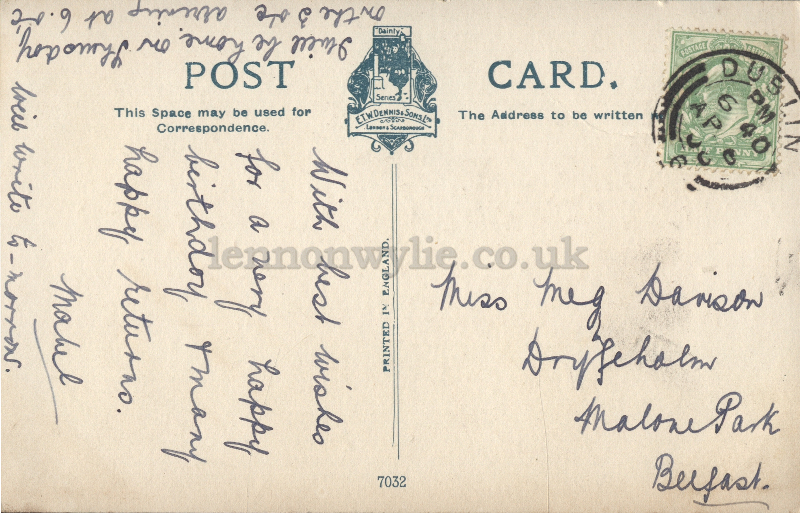 POST CARD.
Dainty
Series
E.T.W. DENNIS & SONS, LTD
LONDON & SCARBOROUGH
This Space may be used for
Correspondence.
The Address to be written
POSTAGE
DUBLIN
6 40 PM
AP 6
With best wishes
for a very happy
birthday & many
happy returns.
Mabel
will write to-morrow.
I will be home on Thursday
on the 3 ste arriving at 6.
PRINTED IN ENGLAND.
Miss Meg Davison
Malone Park
Belfast.
7032
lennonwylie.co.uk